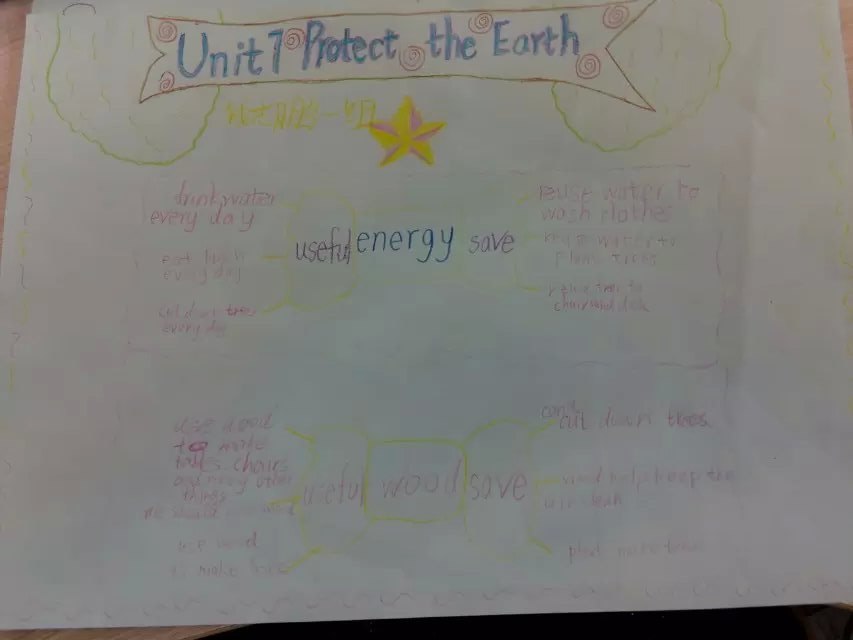 Unit 7 Protect the Earth
drink water
every day
every day
cut down trees
every day
useful energy save
reuse water to
wash clothes
reuse water to
plant trees
chair and desk
use wood
to make
chairs
and many other
things
use wood
to make
useful wood save
cut down trees
wood help keep the
air clean
plant more trees